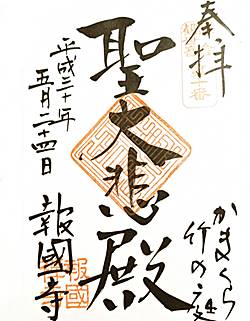 奉拝
かまくら
竹の庭
聖大悲殿
平成二十年
五月二十四日
報國寺